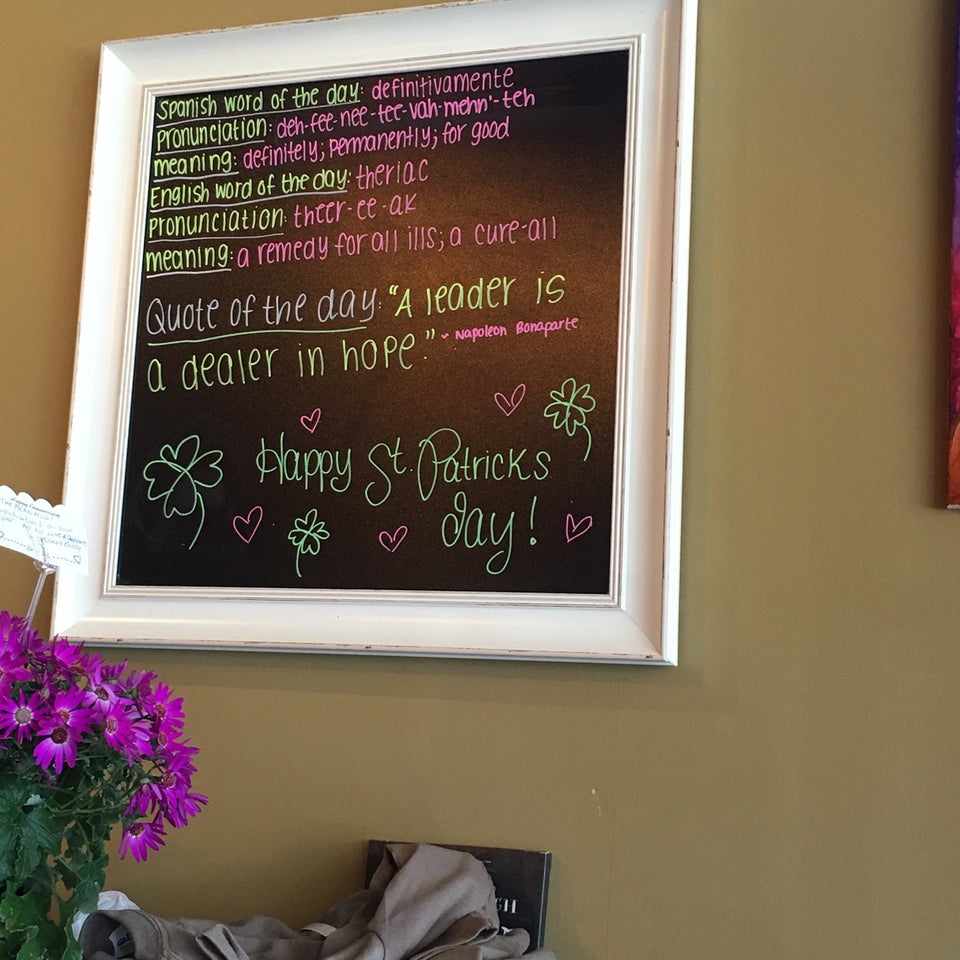 Spanish word of the day: definitivamente
Pronunciation: deh-fee-nee-tee-vah-mehn'-teh
meaning: definitely; permanently; for good
English word of the day: theriac
Pronunciation: theer-ee-ak
meaning: a remedy for all ills; a cure-all
Quote of the day: "A leader is
a dealer in hope." ~ Napoleon Bonaparte
Happy St. Patricks
day!